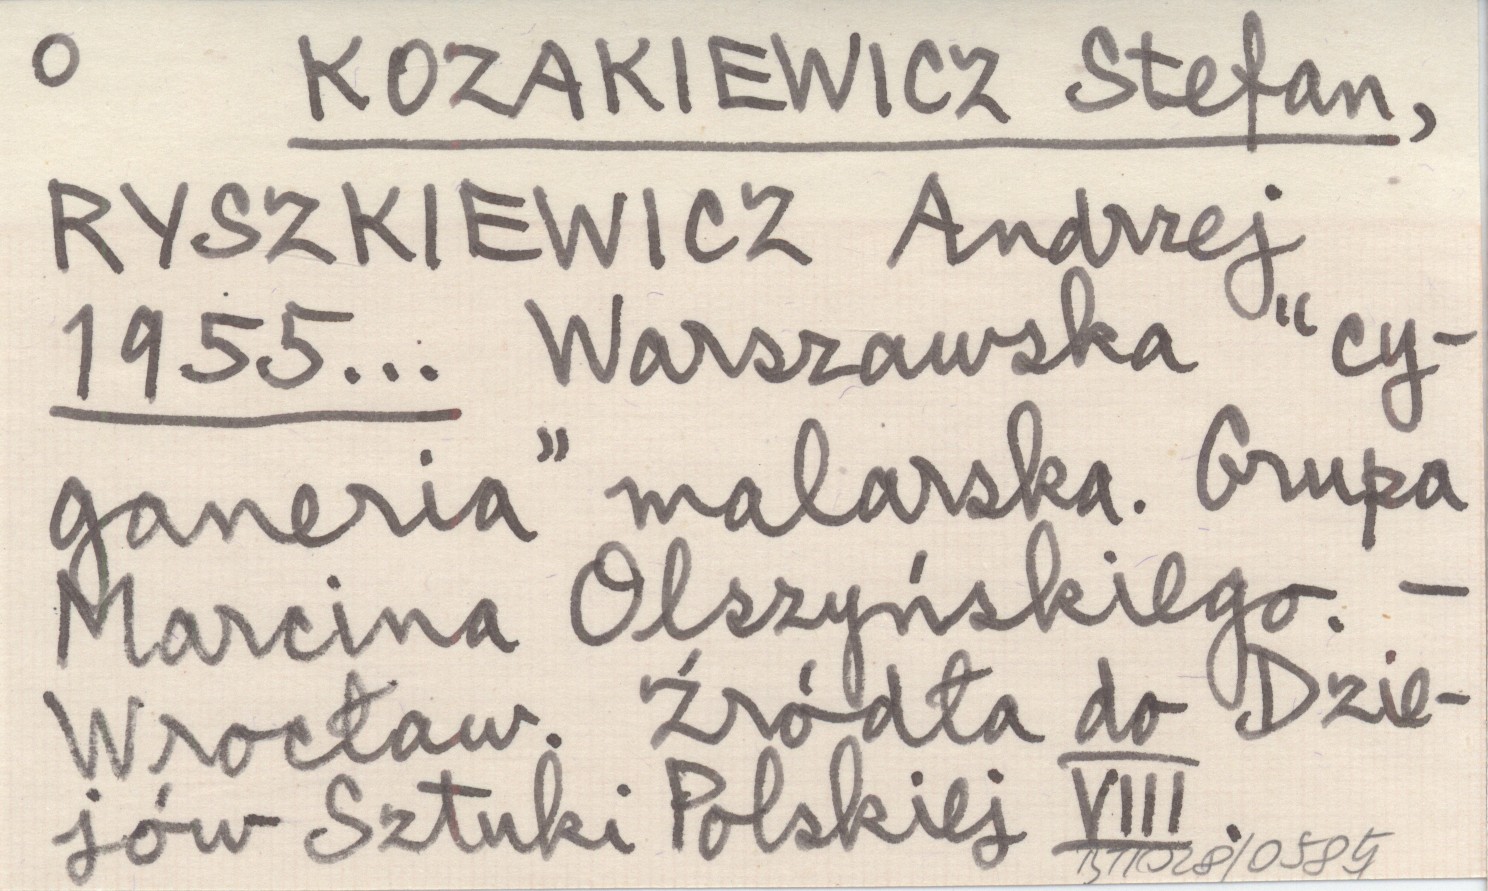 o KOZAKIEWICZ Stefan,
RYSZKIEWICZ Andrzej
1955... Warszawska “cy-
ganeria” malarska. Grupa
Marcina Olszyńskiego. –
Wrocław. Źródła do Dzie-
jów Sztuki Polskiej VIII.